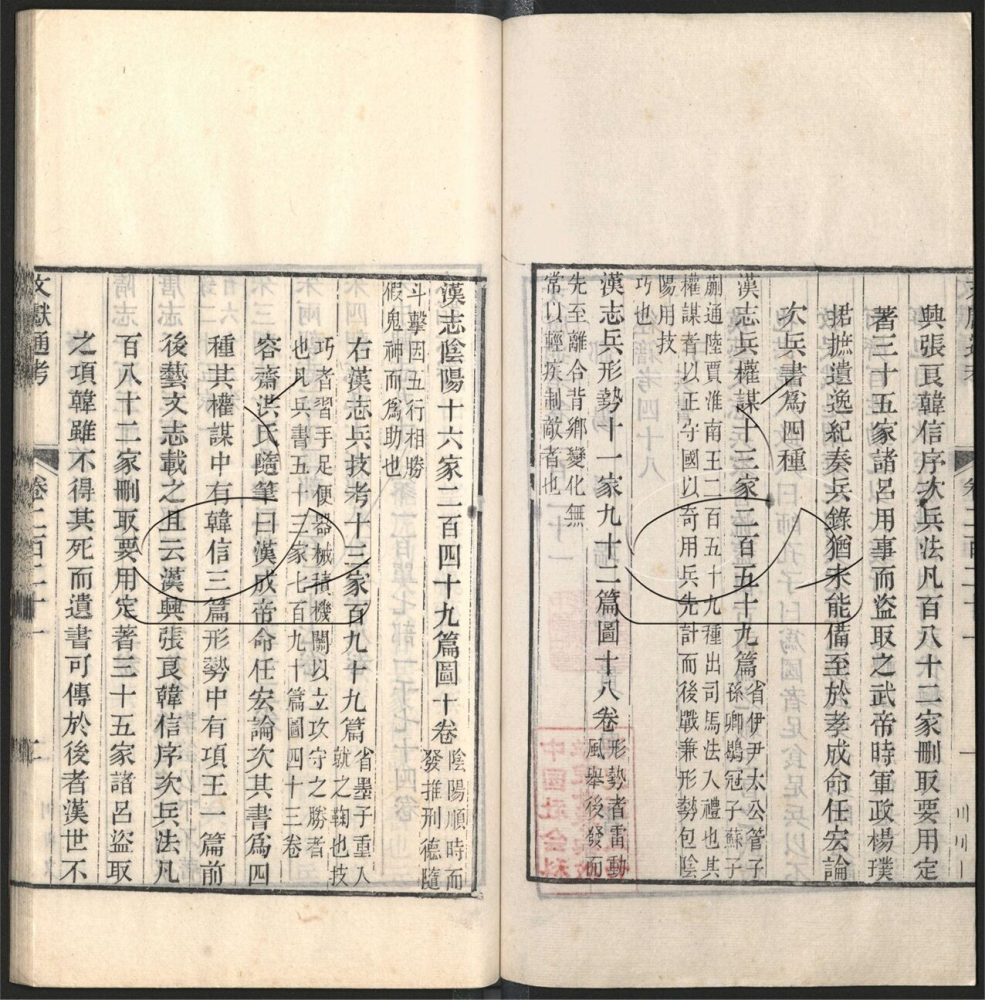 與張良韓信序次兵法凡百八十二家刪取要用定
著三十五家諸呂用事而盜取之武帝時軍政楊璞
捃摭遺逸紀奏兵錄猶未能備至於孝成命任宏論
次兵書爲四種
漢志兵權謀十三家二百五十九篇
省伊尹太公管子
孫卿鶡冠子蘇子
蒯通陸賈淮南王二百五十九種出司馬法入禮也其
權謀者以正守國以奇用兵先計而後戰兼形勢包陰
陽用技
巧也
漢志兵形勢十一家九十二篇圖十八卷
形勢者雷動
風舉後發而
先至離合背鄉變化無
常以輕疾制敵者也
中國社會科
漢志陰陽十六家二百四十九篇圖十卷
陰陽順時而
發推刑德隨
斗擊因五行相勝
假鬼神而爲助也
右漢志兵技考十三家百九十九篇
省墨子重入
就之鞠也技
巧者習手足便器械積機關以立攻守之勝者
也凡兵書五十三家七百九十篇圖四十三卷
容齋洪氏隨筆曰漢成帝命任宏論次其書爲四
種其權謀中有韓信三篇形勢中有項王一篇前
後藝文志載之且云漢興張良韓信序次兵法凡
百八十二家刪取要用定著三十五家諸呂盜取
之項韓雖不得其死而遺書可傳於後者漢世不
文獻通考
卷二百二十一
二